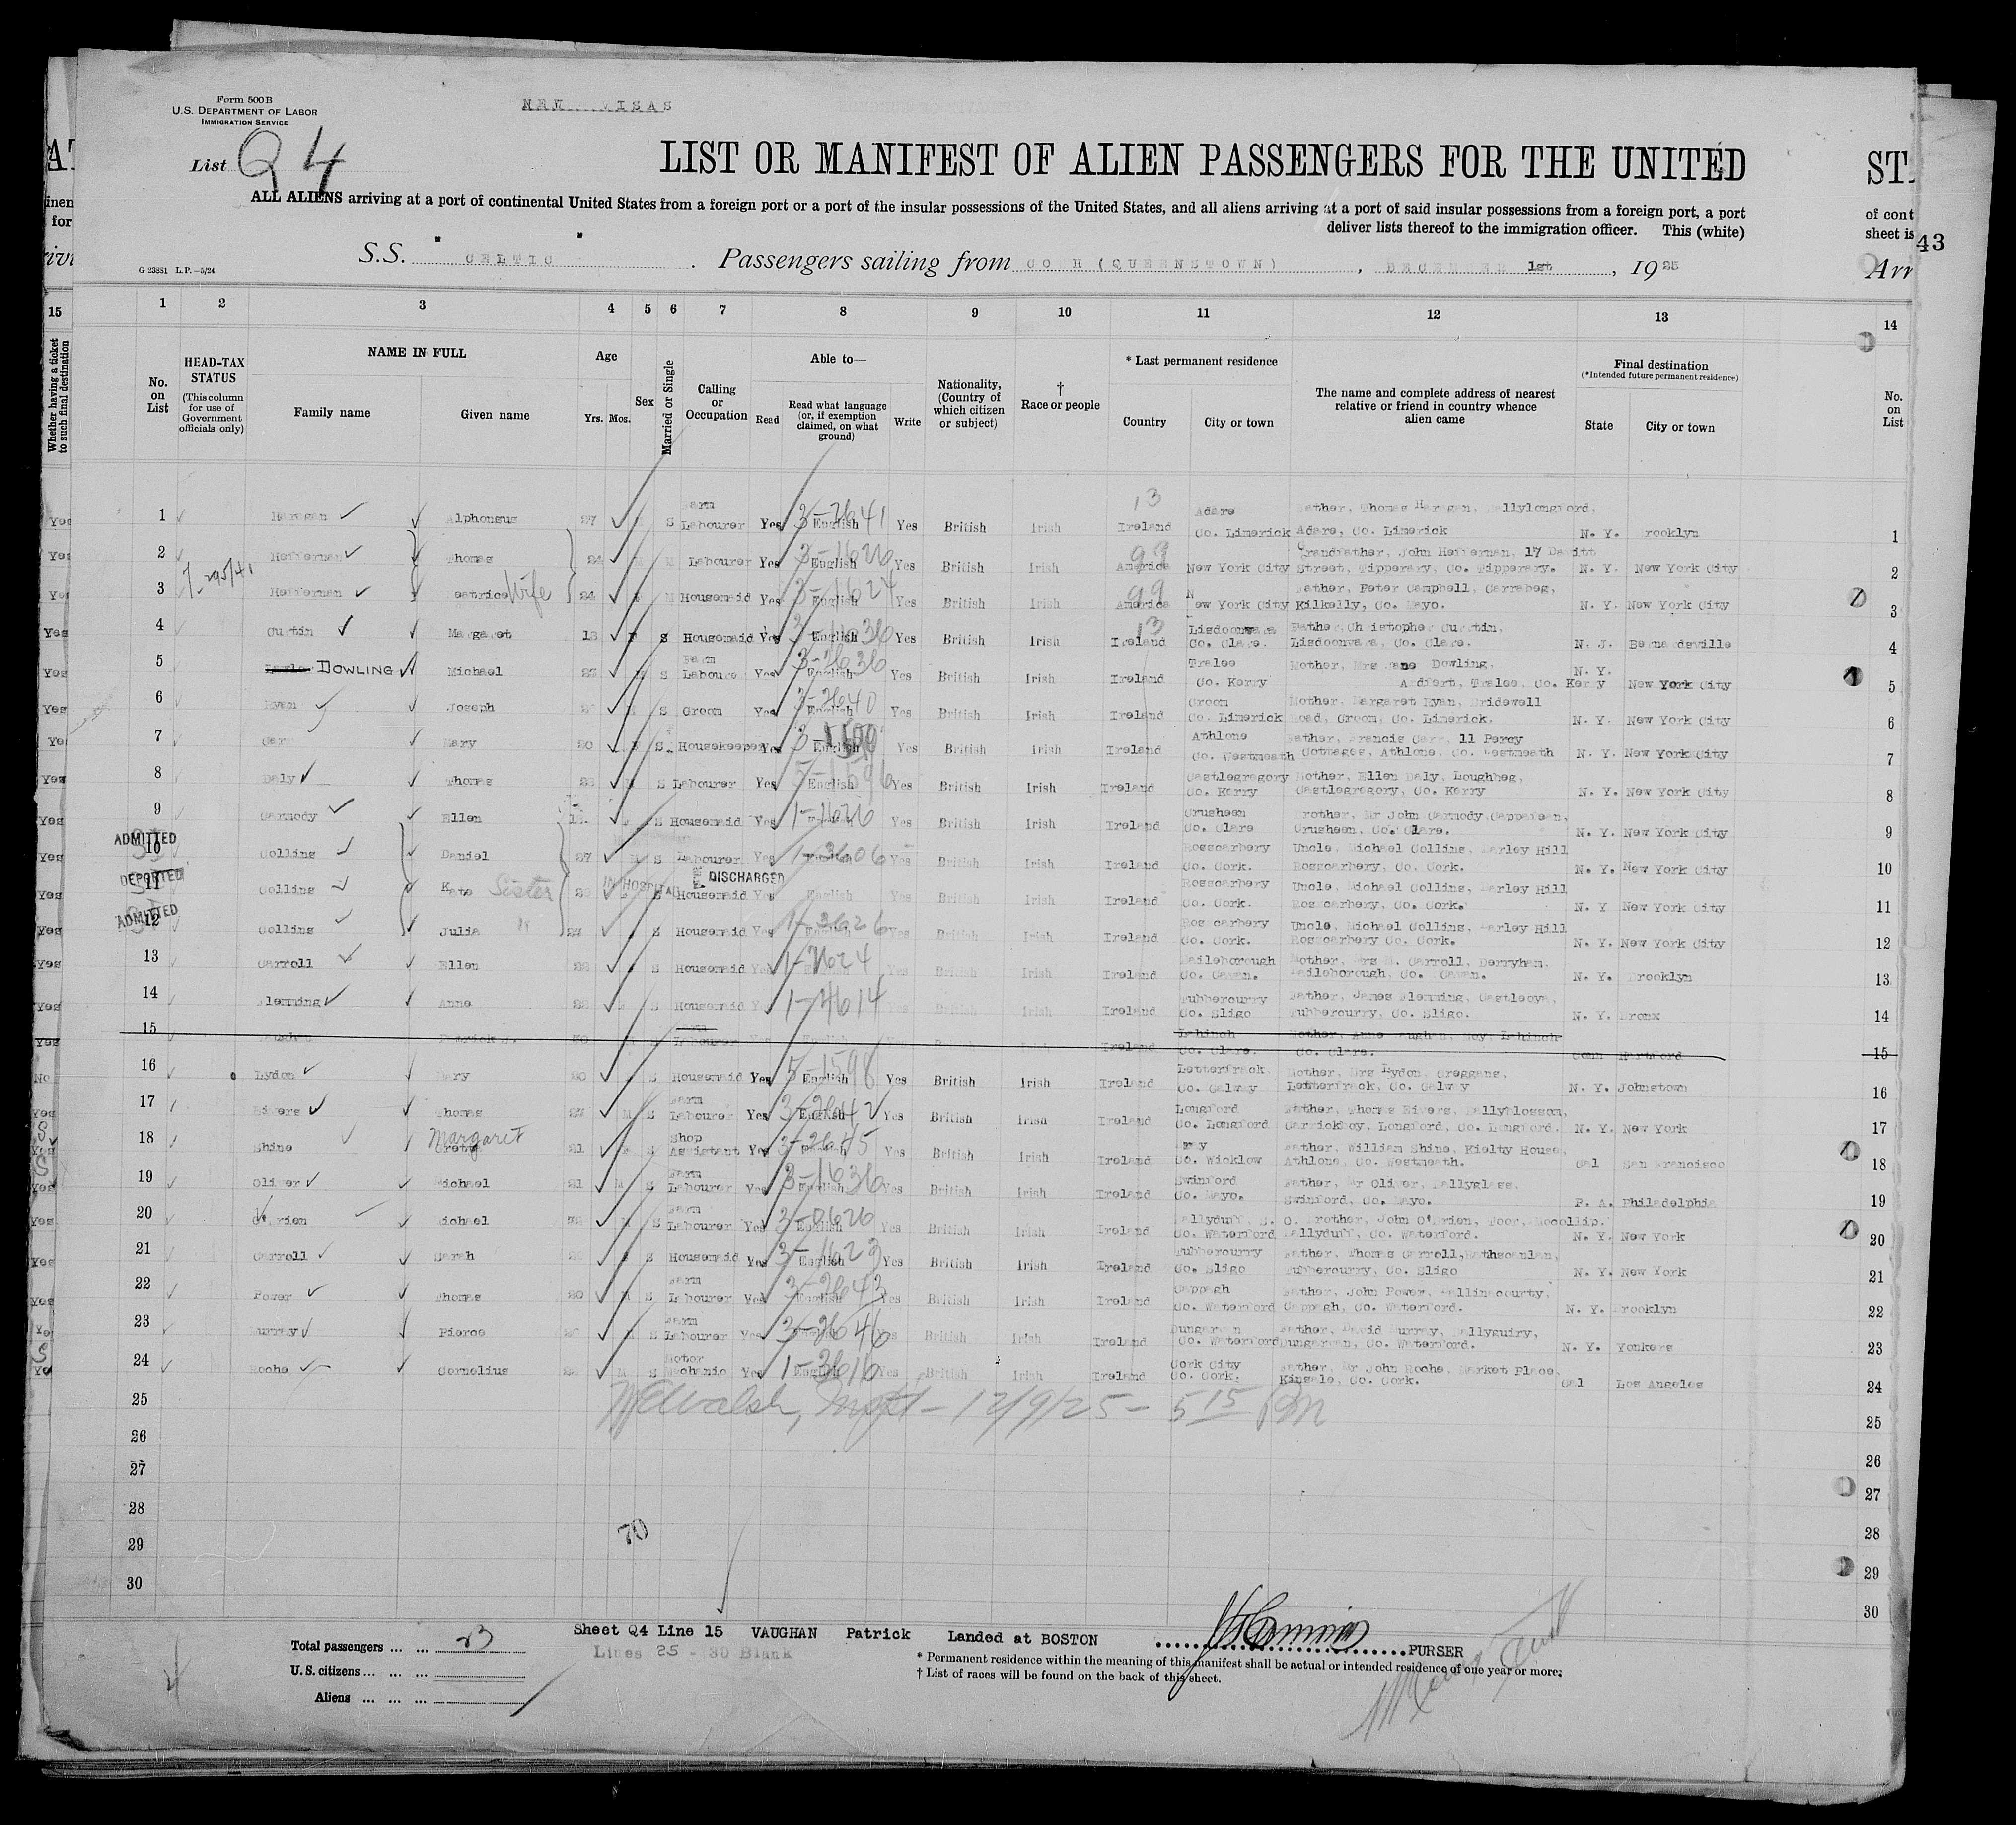 Form 500 B
U.S. DEPARTMENT OF LABOR
IMMIGRATION SERVICE
NEW VISAS
List Q 4
LIST OR MANIFEST OF ALIEN PASSENGERS FOR THE UNITED
ALL ALIENS arriving at a port of continental United States from a foreign port or a port of the insular possessions of the United States, and all aliens arriving at a port of said insular possessions from a foreign port, a port
deliver lists thereof to the immigration officer. This (white)
of cont
sheet is
43
G 23881 L.P.—5/24
S.S. "CELTIC". Passengers sailing from COBH (QUEENSTOWN), DECEMBER 1st, 1925
Arr
15 1 2 3 4 5 6 7 8 9 10 11 12 13 14
Whether having a ticket to such final destination
No. on List
HEAD-TAX STATUS
(This column for use of Government officials only)
NAME IN FULL
Family name Given name
Age
Yrs. Mos.
Sex
Married or Single
Calling or Occupation
Able to—
Read
Read what language (or, if exemption claimed, on what ground)
Write
Nationality, (Country of which citizen or subject)
† Race or people
* Last permanent residence
Country City or town
The name and complete address of nearest relative or friend in country whence alien came
Final destination
(*Intended future permanent residence)
State City or town
No. on List
Yes 1 Alphonsus 27 S Farm Labourer Yes English 3-2641 Yes British Irish 13 Ireland Adare Co. Limerick Adare, Co. Limerick N. Y. Brooklyn 1
Yes 2 Heffernan Thomas M Labourer Yes English 3-1626 Yes British Irish America New York City Grandfather, John Heffernan, 17 Davitt Street, Tipperary, Co. Tipperary. N. Y. New York City 2
Yes 3 Heffernan Beatrice Wife 24 M Housemaid Yes English 3-1624 Yes British Irish 99 America New York City Father, Peter Campbell, Kilkelly, Co. Mayo. N. Y. New York City 3
Yes 4 Curtin Margaret 18 F S Housemaid Yes English Yes British Irish 13 Ireland Lisdoonvara Co. Clare. Father, Christopher Curtin, Lisdoonvara, Co. Clare. N. J. Bernardsville 4
Yes 5 DOWLING Michael M S Farm Labourer Yes English 3-2636 Yes British Irish Ireland Tralee Co. Kerry Mother, Mrs Jane Dowling, Ardfert, Tralee, Co. Kerry N. Y. New York City 5
Yes 6 Ryan Joseph M S Groom Yes English 3-2640 Yes British Irish Ireland Croom Co. Limerick Mother, Margaret Ryan, Bridewell Road, Croom, Co. Limerick. N. Y. New York City 6
Yes 7 Mary 20 F S Housekeeper Yes English Yes British Irish Ireland Athlone Co. Westmeath Father, Francis 11 Percy Cottages, Athlone, Co. Westmeath N. Y. New York City 7
Yes 8 Daly Thomas M S Labourer Yes English 5-1596 Yes British Irish Ireland Castlegregory Co. Kerry Mother, Ellen Daly, Loughbeg, Castlegregory, Co. Kerry N. Y. New York City 8
Yes 9 Carmody Ellen S Housemaid Yes 1-1626 Yes British Irish Ireland Crusheen Co. Clare Brother, Mr John Carmody, Crusheen, Co. Clare. N. Y. New York City 9
ADMITTED
Yes 10 Collins Daniel 27 M S Labourer Yes 1-3606 Yes British Irish Ireland Rosscarbery Co. Cork. Uncle, Michael Collins, Rosscarbery, Co. Cork. N. Y. New York City 10
DEPORTED
Yes 11 Collins Kate Sister IN HOSPITAL DISCHARGED S Housemaid Yes English Yes British Irish Ireland Rosscarbery Co. Cork. Uncle, Michael Collins, Rosscarbery, Co. Cork. N. Y New York City 11
ADMITTED
Yes 12 Collins Julia " 24 S Housemaid Yes English 1-3626 Yes British Irish Ireland Rosscarbery Co. Cork. Uncle, Michael Collins, Rosscarbery Co. Cork. N. Y. New York City 12
Yes 13 Carroll Ellen S Housemaid Yes 1-2624 Yes British Irish Ireland Bailieborough Co. Cavan. Mother, Mrs Carroll, Bailieborough, Co. Cavan. N. Y. Brooklyn 13
Yes 14 Flemming Anne S Housemaid Yes 1-2614 Yes British Irish Ireland Tubbercurry Co. Sligo Father, James Flemming, Tubbercurry, Co. Sligo. N. Y. Bronx 14
Yes 15 Vaughan Patrick Labourer Ireland Lahinch Co. Clare. Mother, Anne Vaughan, Moy, Lahinch Co. Clare. Conn Hartford 15
No 16 Lydon Mary 20 S Housemaid Yes English 5-1598 Yes British Irish Ireland Letterfrack Co. Galway Mother, Mrs Lydon, Creggans, Letterfrack, Co. Galway N. Y. Johnstown 16
Yes 17 Thomas M S Farm Labourer Yes English 3-2642 Yes British Irish Ireland Longford Co. Longford Father, Thomas Carrickboy, Longford, Co. Longford. N. Y. New York 17
S Yes 18 Shine Margaret Gretta 21 S Shop Assistant Yes 3-2645 Yes British Irish Ireland Bray Co. Wicklow Father, William Shine, Kielty House, Athlone, Co. Westmeath. Cal San Francisco 18
S Yes 19 Oliver Michael 21 M S Farm Labourer Yes English 3-1636 Yes British Irish Ireland Swinford Co. Mayo. Father, Mr Oliver, Ballyglass, Swinford, Co. Mayo. P. A. Philadelphia 19
Yes 20 O'Brien Michael M S Farm Labourer Yes English 3-0626 Yes British Irish Ireland Ballyduff, S. O. Co. Waterford Brother, John O'Brien, Ballyduff, Co. Waterford. N. Y. New York 20
Yes 21 Carroll Sarah S Housemaid Yes English 3-1623 Yes British Irish Ireland Tubbercurry Co. Sligo Father, Thomas Carroll, Rathscanlan, Tubbercurry, Co. Sligo N. Y. New York 21
Yes 22 Power Thomas 20 M S Farm Labourer Yes English 3-2643 Yes British Irish Ireland Cappagh Co. Waterford Father, John Power, Cappagh, Co. Waterford. N. Y. Brooklyn 22
Yes 23 Murray Pierce M S Farm Labourer Yes 3-2646 Yes British Irish Ireland Dungarvan Co. Waterford Father, David Murray, Ballyguiry, Dungarvan, Co. Waterford. N. Y. Yonkers 23
S Yes 24 Roche Cornelius M S Motor Mechanic Yes English 1-3616 Yes British Irish Ireland Cork City Co. Cork. Father, Mr John Roche, Market Place, Kinsale, Co. Cork. Cal Los Angeles 24
25 Walsh, 12/9/25 - 5 15 PM 25
26 26
27 27
28 28
70
29 29
30 30
Sheet Q4 Line 15 VAUGHAN Patrick Landed at BOSTON
Lines 25 - 30 Blank
Total passengers ... ... 23
U. S. citizens ... ... ...
Aliens ... ... ...
PURSER
* Permanent residence within the meaning of this manifest shall be actual or intended residence of one year or more.
† List of races will be found on the back of this sheet.